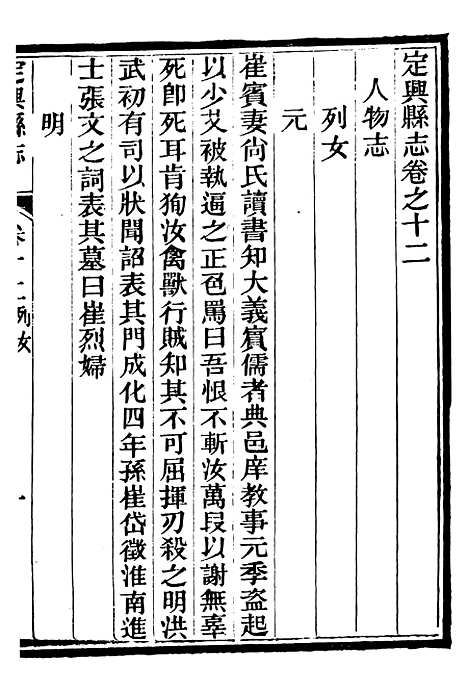 定興縣志卷之十二
人物志
列女
元
崔賓妻尙氏讀書知大義賓儒者典邑庠教事元季盜起
以少艾被執逼之正色罵曰吾恨不斬汝萬段以謝無辜
死卽死耳肯狥汝禽獸行賊知其不可屈揮刃殺之明洪
武初有司以狀聞詔表其門成化四年孫崔岱徵淮南進
士張文之詞表其墓曰崔烈婦
明
定興縣志
卷十二列女
一